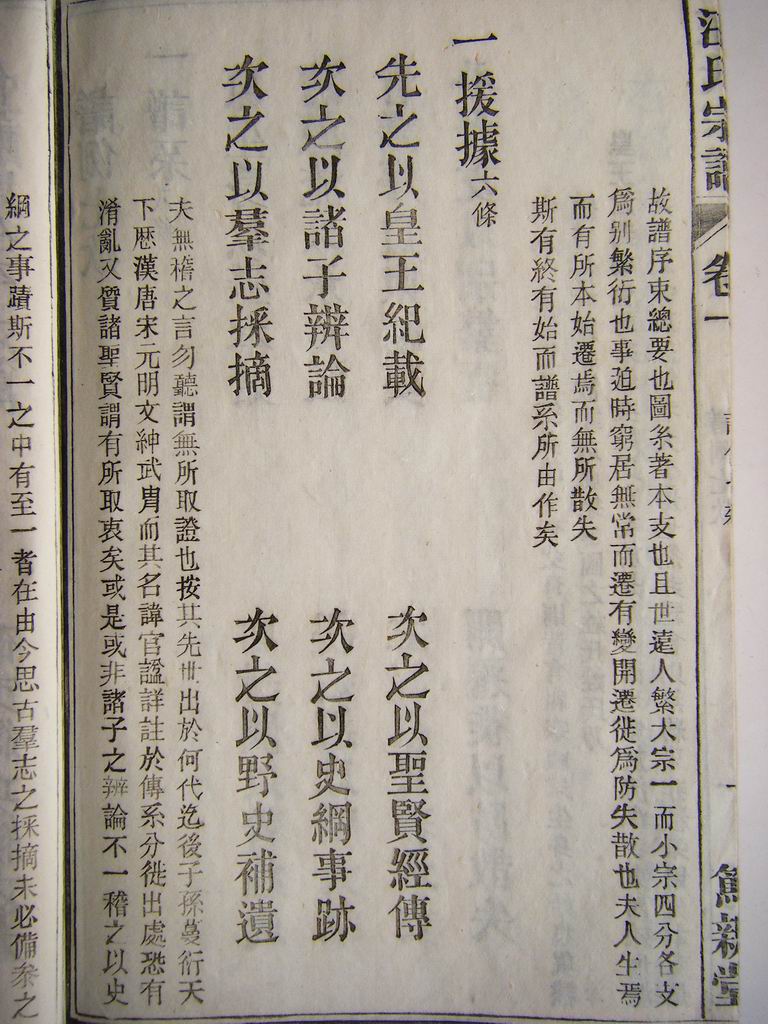 汪氏宗譜
卷一
故譜序東總要也圖系著本支也且世遠人繁大宗一而小宗四分各支
爲别繁衍也事廹時窮居無常而遷有變開遷徙爲防失散也夫人生焉
而有所本始遷焉而無所散失
斯有終有始而譜系所由作矣
一援據六條
先之以皇王紀載
次之以聖賢經傳
次之以諸子辨論
次之以史綱事跡
次之以羣志採摘
次之以野史補遺
夫無稽之言勿聽謂無所取證也按其先世出於何代迄後子孫蔓衍天
下歷漢唐宋元明文紳武胄而其名諱官諡詳註於傳系分徙出處恐有
淆亂又質諸聖賢謂有所取衷矣或是或非諸子之辨論不一稽之以史
綱之事蹟斯不一之中有至一者在由今思古羣志之採摘未必備叅之